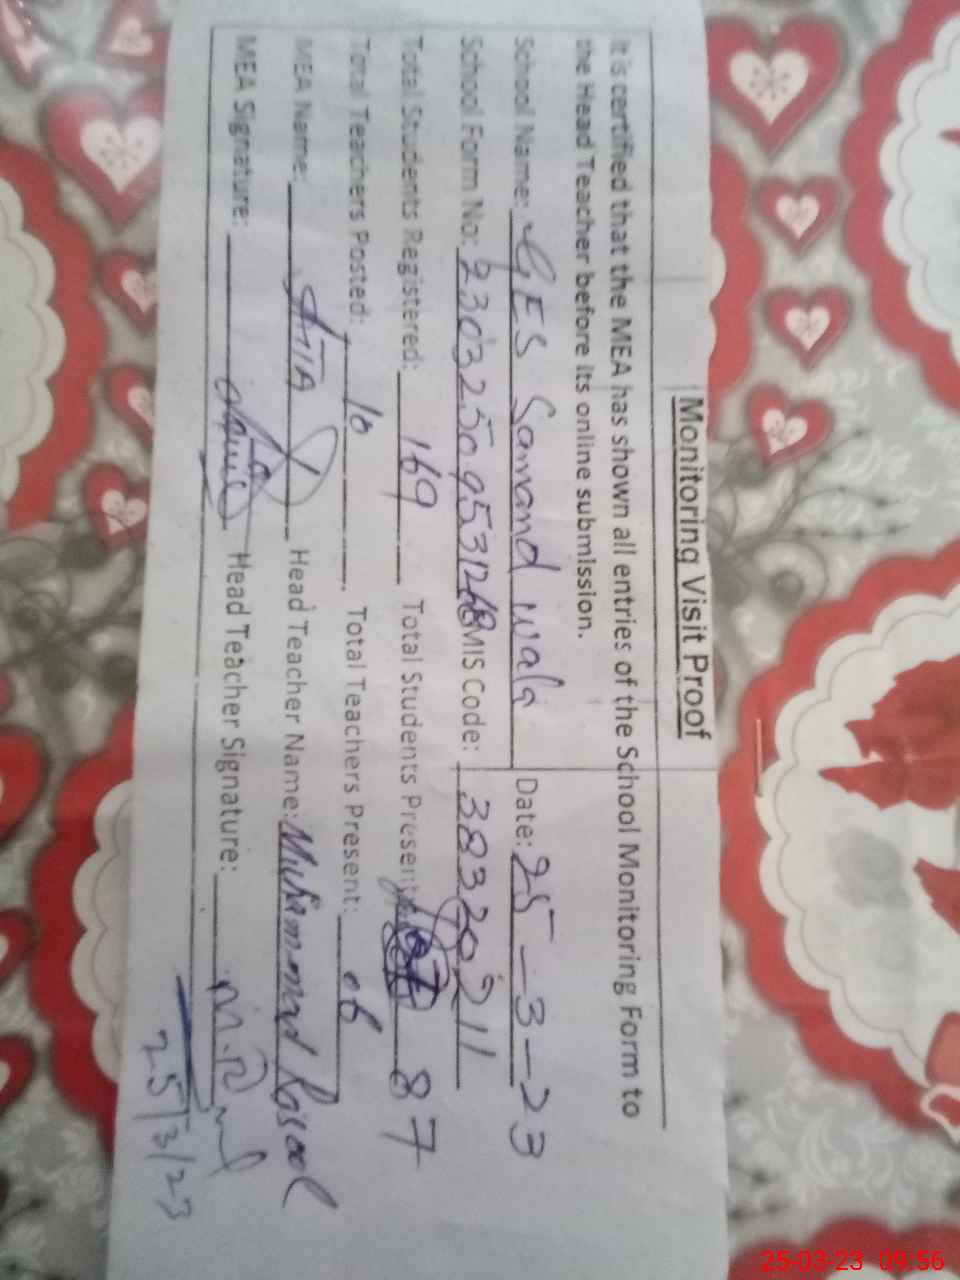 Monitoring Visit Proof
It is certified that the MEA has shown all entries of the School Monitoring Form to
the Head Teacher before its online submission.
School Name: GES Samand wala Date: 25-3-23
School Form No: 230325095312 EMIS Code: 38320211
Total Students Registered: 169 Total Students Present: 87
Total Teachers Posted: 10 Total Teachers Present: 06
MEA Name: ATTA Head Teacher Name: Muhammad Rasool
MEA Signature: Head Teacher Signature:
25/3/23
25-03-23 09:56